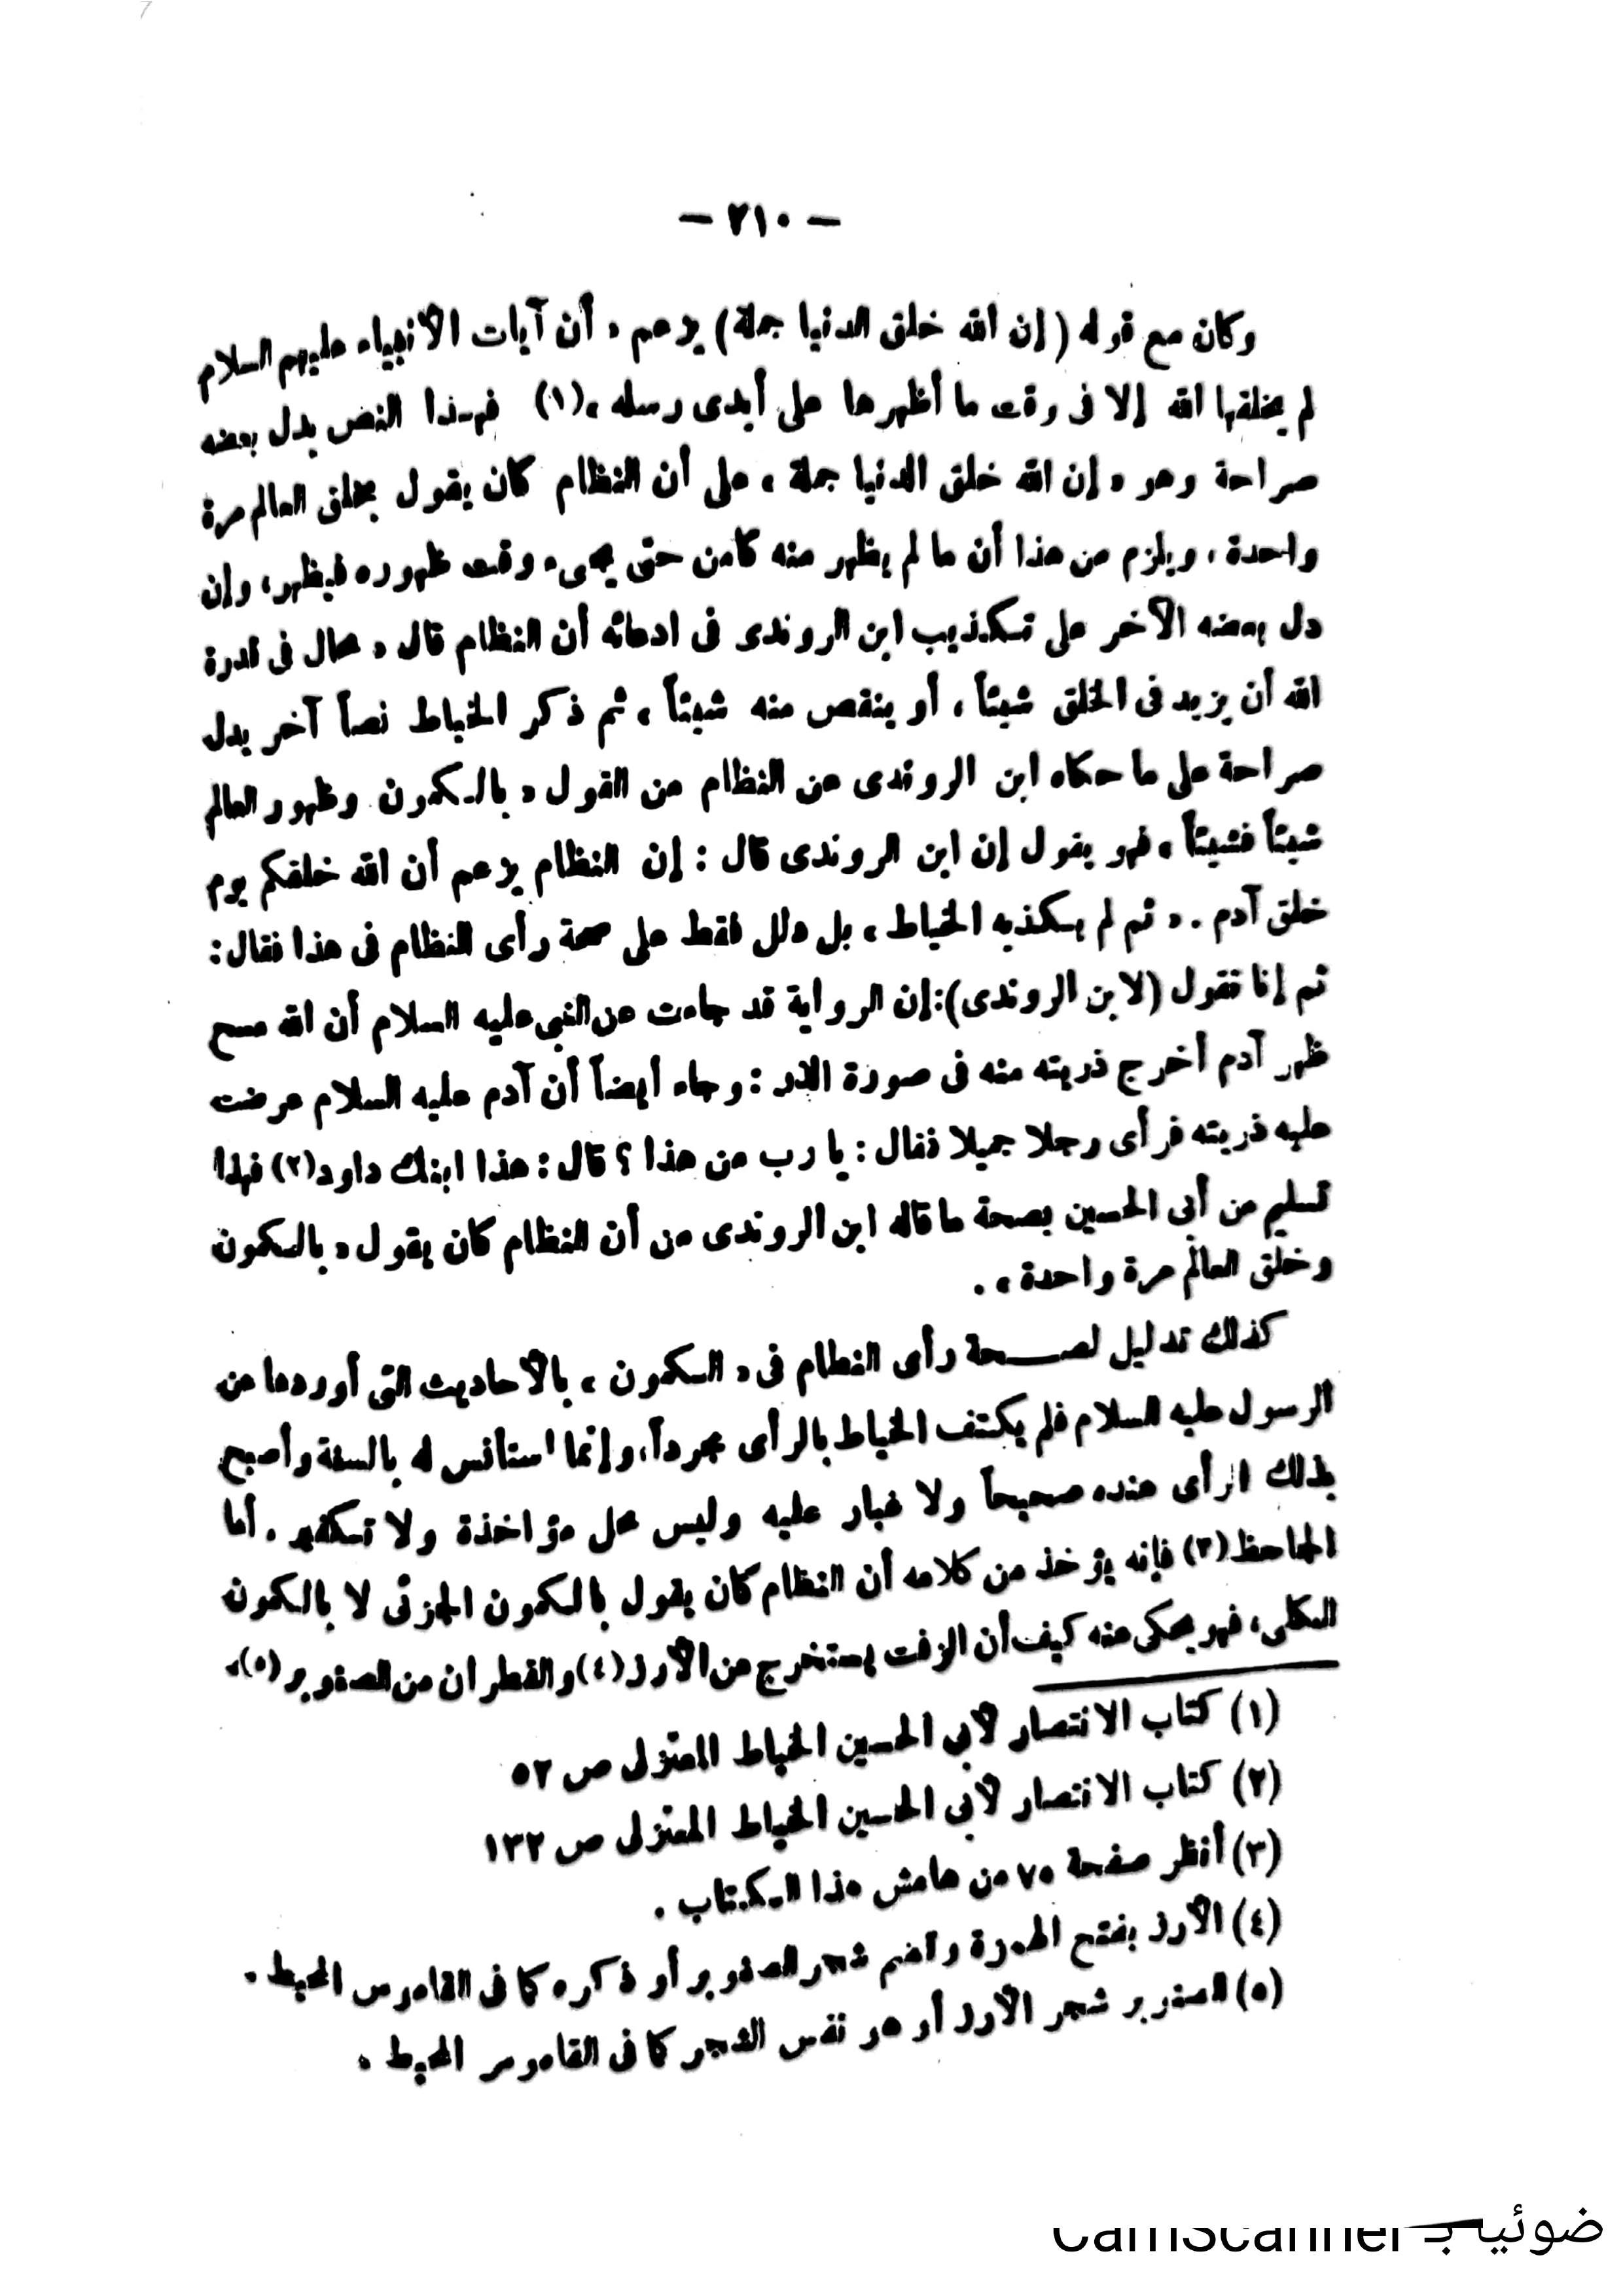 — ٢١٠ —
وكان مع قوله (إن الله خلق الدنيا جملة) يزعم « أن آيات الأنبياء عليهم السلام
لم يخلقها الله إلا فى وقت ما أظهرها على أيدى رسله »(١) فهذا النص يدل بعضه
صراحة وهو « إن الله خلق الدنيا جملة » على أن النظام كان يقول بخلق العالم مرة
واحدة ، ويلزم من هذا أن ما لم يظهر منه كامن حتى يجىء وقت ظهوره فيظهر، وإن
دل بعضه الآخر على تكذيب ابن الروندى فى ادعائه أن النظام قال « محال فى قدرة
الله أن يزيد فى الخلق شيئاً ، أو ينقص منه شيئاً » ثم ذكر الخياط نصاً آخر يدل
صراحة على ما حكاه ابن الروندى عن النظام من القول « بالكمون وظهور العالم
شيئاً فشيئاً » فهو يقول إن ابن الروندى قال : إن النظام يزعم أن الله خلقكم يوم
خلق آدم . « ثم لم يكذبه الخياط ، بل دلل فقط على صحة رأى النظام فى هذا فقال :
ثم إنا نقول (لابن الروندى): إن الرواية قد جاءت عن النبى عليه السلام أن الله مسح
ظهر آدم أخرج ذريته منه فى صورة الذر : وجاء أيضاً أن آدم عليه السلام عرضت
عليه ذريته فرأى رجلا جميلا فقال : يا رب من هذا ؟ قال : هذا ابنك داود(٢) فهذا
تسليم من أبى الحسين بصحة ما قاله ابن الروندى من أن النظام كان يقول « بالكمون
وخلق العالم مرة واحدة » .
كذلك تدليل لصحة رأى النظام فى « الكمون » بالأحاديث التى أوردها عن
الرسول عليه السلام فلم يكتف الخياط بالرأى مجرداً، وإنما استأنس له بالسنة وأصبح
بذلك الرأى عنده صحيحاً ولا غبار عليه وليس محل مؤاخذة ولا تكفير . أما
الجاحظ (٣) فإنه يؤخذ من كلامه أن النظام كان يقول بالكمون الجزئى لا بالكمون
الكلى، فهو يحكى عنه كيف أن الزفت يستخرج من الأرز (٤) والقطران من الصنوبر (٥)،
(١) كتاب الانتصار لأبى الحسين الخياط المعتزلى ص ٥٢
(٢) كتاب الانتصار لأبى الحسين الخياط المعتزلى ص ١٣٢
(٣) أنظر صفحة ٧٥ من هامش هذا الكتاب .
(٤) الأرز بفتح الهمزة وتضم شجر الصنوبر أو ذكره كما فى القاموس المحيط .
(٥) الصنوبر شجر الأرز أو هو نفس الشجر كما فى القاموس المحيط .
ضوئيا بـ CamScanner